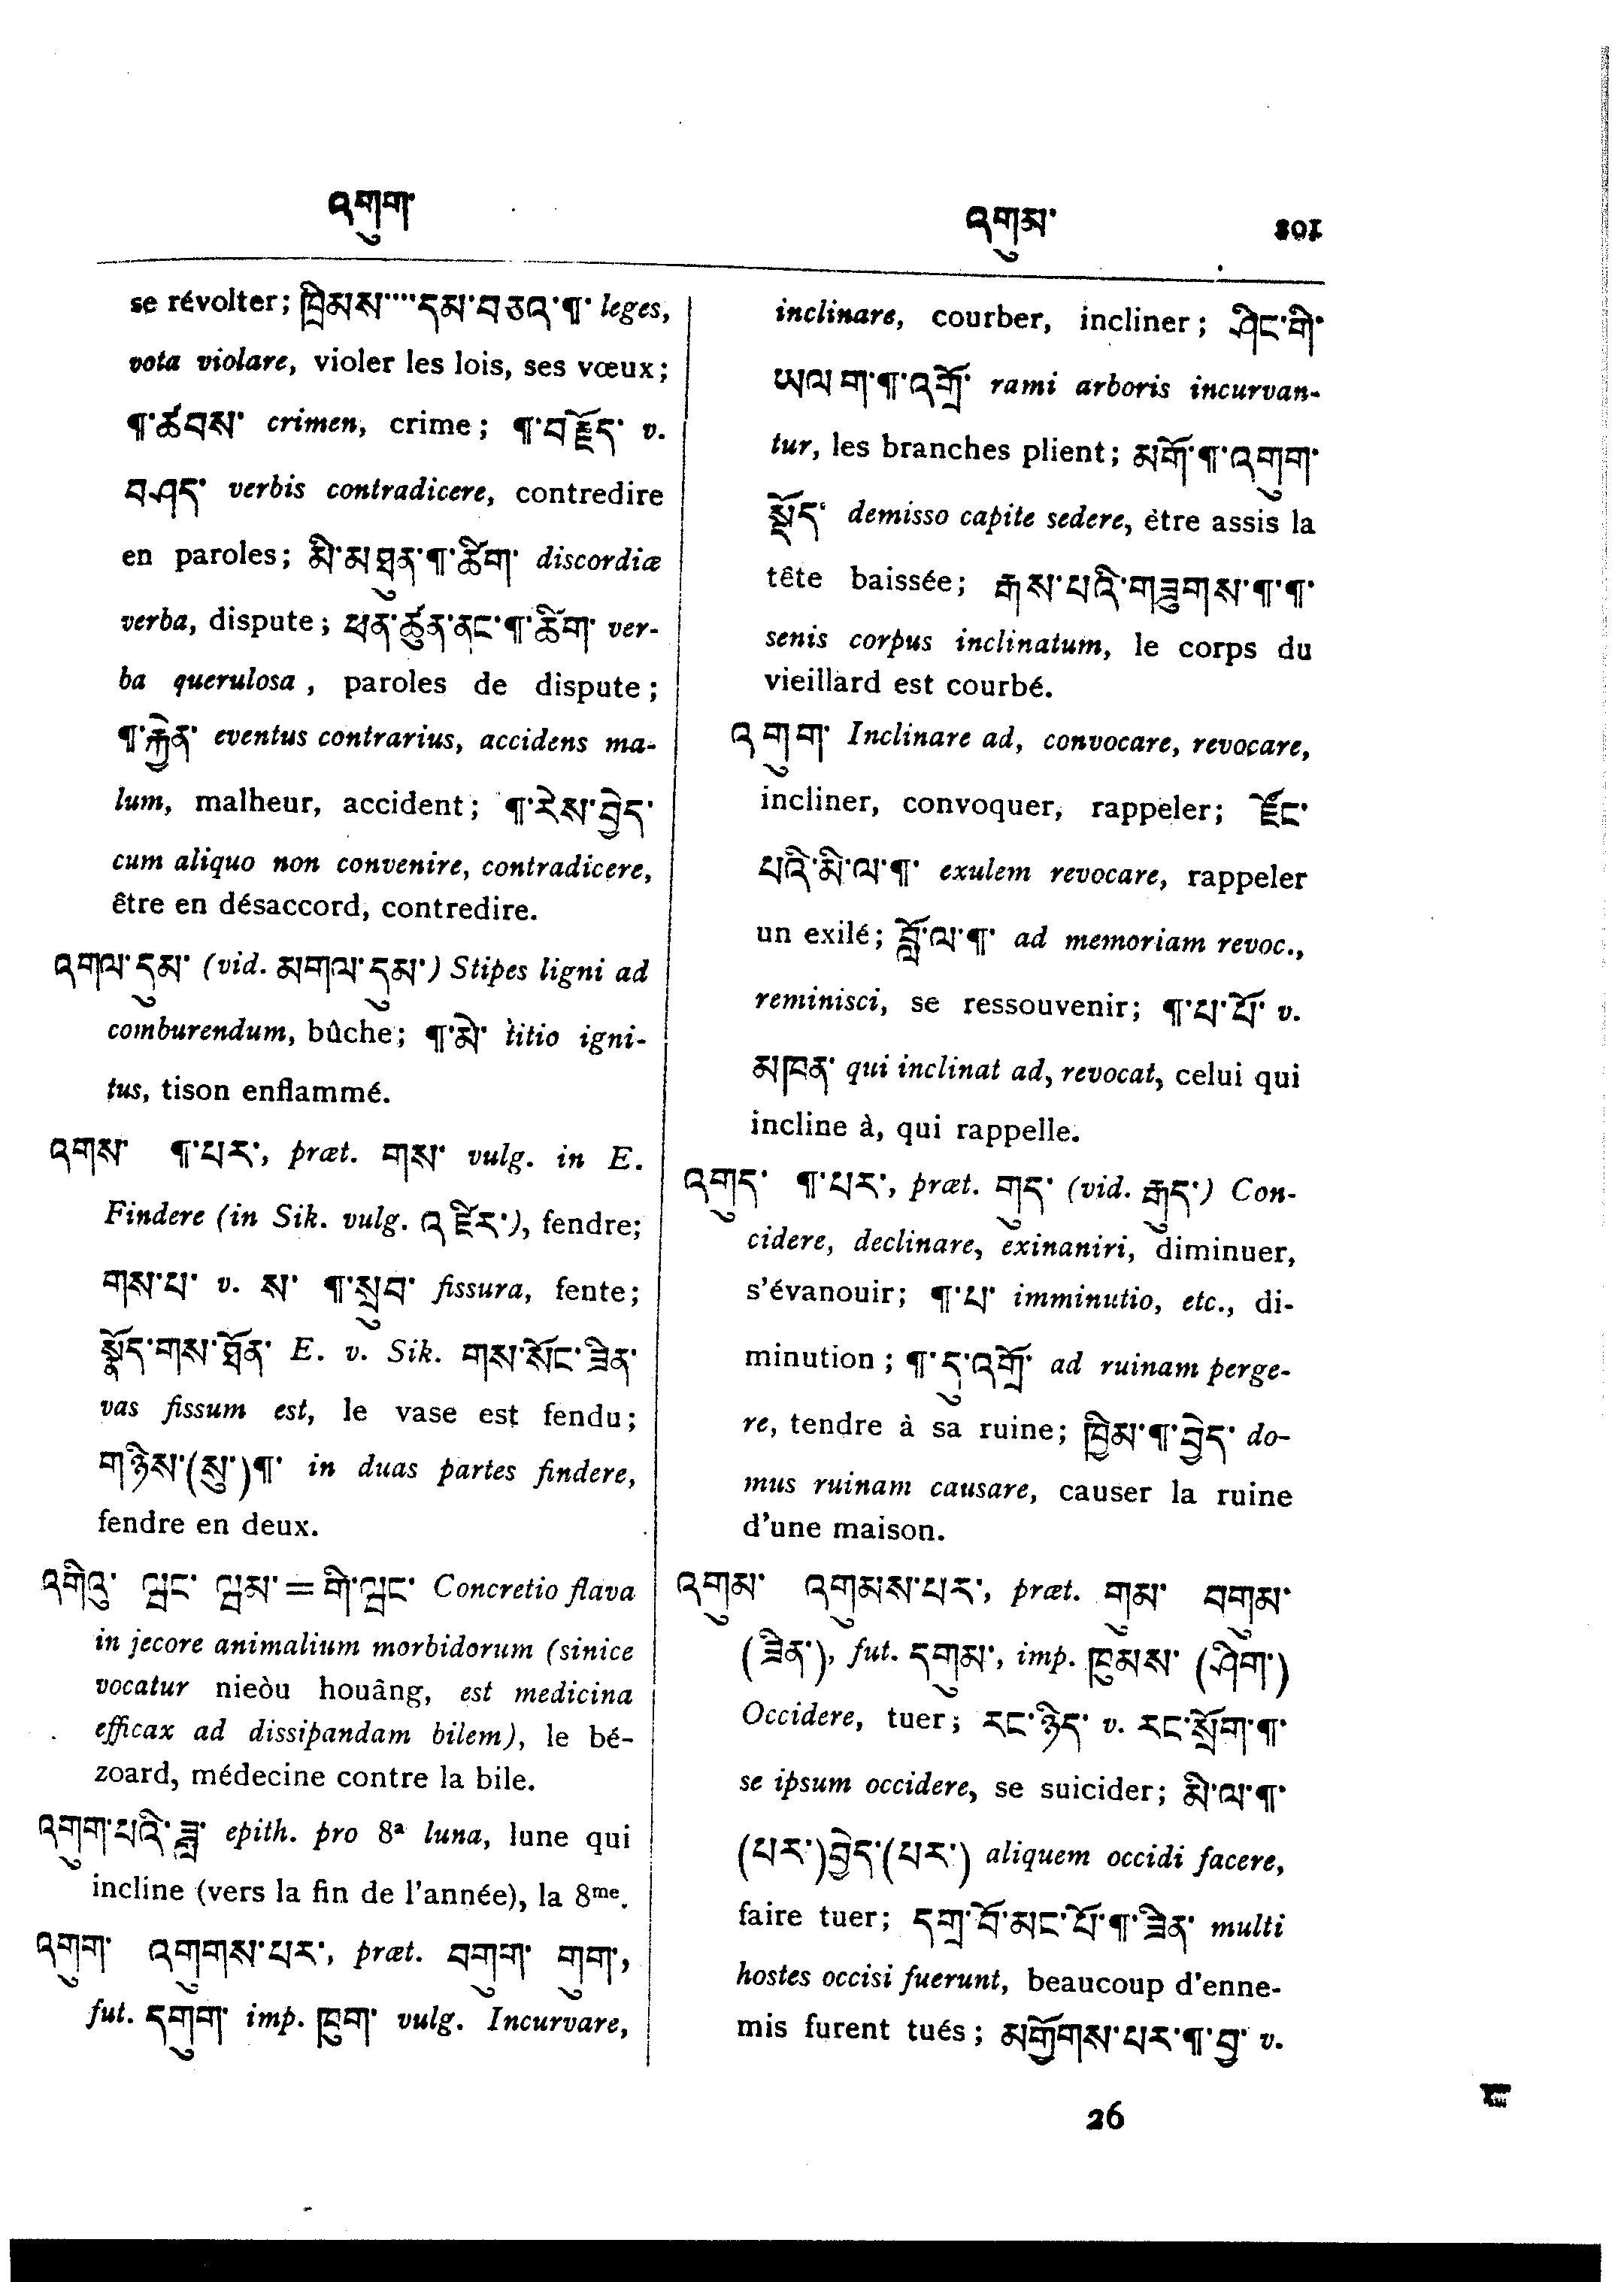 འགུག་
འགུམ་ 201
se révolter; ཁྲིམས་····དམ་བཅའ་¶་ leges,
vota violare, violer les lois, ses vœux;
¶་ཚབས་ crimen, crime; ¶་བརྗོད་ v.
བཤད་ verbis contradicere, contredire
en paroles; མི་མཐུན་¶་ཚིག་ discordiæ
verba, dispute; ཕན་ཚུན་ནང་¶་ཚིག་ ver-
ba querulosa, paroles de dispute;
¶་རྐྱེན་ eventus contrarius, accidens ma-
lum, malheur, accident; ¶་རེས་བྱེད་
cum aliquo non convenire, contradicere,
être en désaccord, contredire.
འགལ་དུམ་ (vid. མགལ་དུམ་) Stipes ligni ad
comburendum, bûche; ¶་མེ་ titio igni-
tus, tison enflammé.
འགས་ ¶་པར་, præt. གས་ vulg. in E.
Findere (in Sik. vulg. འཛེར་), fendre;
གས་པ་ v. ས་ ¶་སྲུབ་ fissura, fente;
སྣོད་གས་ཐོན་ E. v. Sik. གས་སོང་ཟིན་
vas fissum est, le vase est fendu;
གཉིས་(སུ་)¶་ in duas partes findere,
fendre en deux.
འགིའུ་ ལྦང་ ལྦམ་ = གི་ལྦང་ Concretio flava
in jecore animalium morbidorum (sinice
vocatur nieòu houâng, est medicina
efficax ad dissipandam bilem), le bé-
zoard, médecine contre la bile.
འགུག་པའི་ཟླ་ epith. pro 8ª luna, lune qui
incline (vers la fin de l'année), la 8me.
འགུག་ འགུགས་པར་, præt. བགུག་ གུག་,
fut. དགུག་ imp. ཁུག་ vulg. Incurvare,
inclinare, courber, incliner; ཤིང་གི་
ཡལ་ག་¶་འགྲོ་ rami arboris incurvan-
tur, les branches plient; མགོ་¶་འགུག་
སྡོད་ demisso capite sedere, être assis la
tête baissée; རྒས་པའི་གཟུགས་¶་¶་
senis corpus inclinatum, le corps du
vieillard est courbé.
འགུག་ Inclinare ad, convocare, revocare,
incliner, convoquer, rappeler; རྫོང་
པའི་མི་ལ་¶་ exulem revocare, rappeler
un exilé; བློ་ལ་¶་ ad memoriam revoc.,
reminisci, se ressouvenir; ¶་པ་པོ་ v.
མཁན་ qui inclinat ad, revocat, celui qui
incline à, qui rappelle.
འགུད་ ¶་པར་, præt. གུད་ (vid. རྒུད་) Con-
cidere, declinare, exinaniri, diminuer,
s'évanouir; ¶་པ་ imminutio, etc., di-
minution; ¶་དུ་འགྲོ་ ad ruinam perge-
re, tendre à sa ruine; ཁྱིམ་¶་བྱེད་ do-
mus ruinam causare, causer la ruine
d'une maison.
འགུམ་ འགུམས་པར་, præt. གུམ་ བགུམ་
(ཟིན་), fut. དགུམ་, imp. ཁུམས་ (ཤིག་)
Occidere, tuer; རང་ཉིད་ v. རང་སྲོག་¶་
se ipsum occidere, se suicider; མི་ལ་¶་
(པར་)བྱེད་(པར་) aliquem occidi facere,
faire tuer; དགྲ་བོ་མང་པོ་¶་ཟིན་ multi
hostes occisi fuerunt, beaucoup d'enne-
mis furent tués; མགྱོགས་པར་¶་བྱ་ v.
26